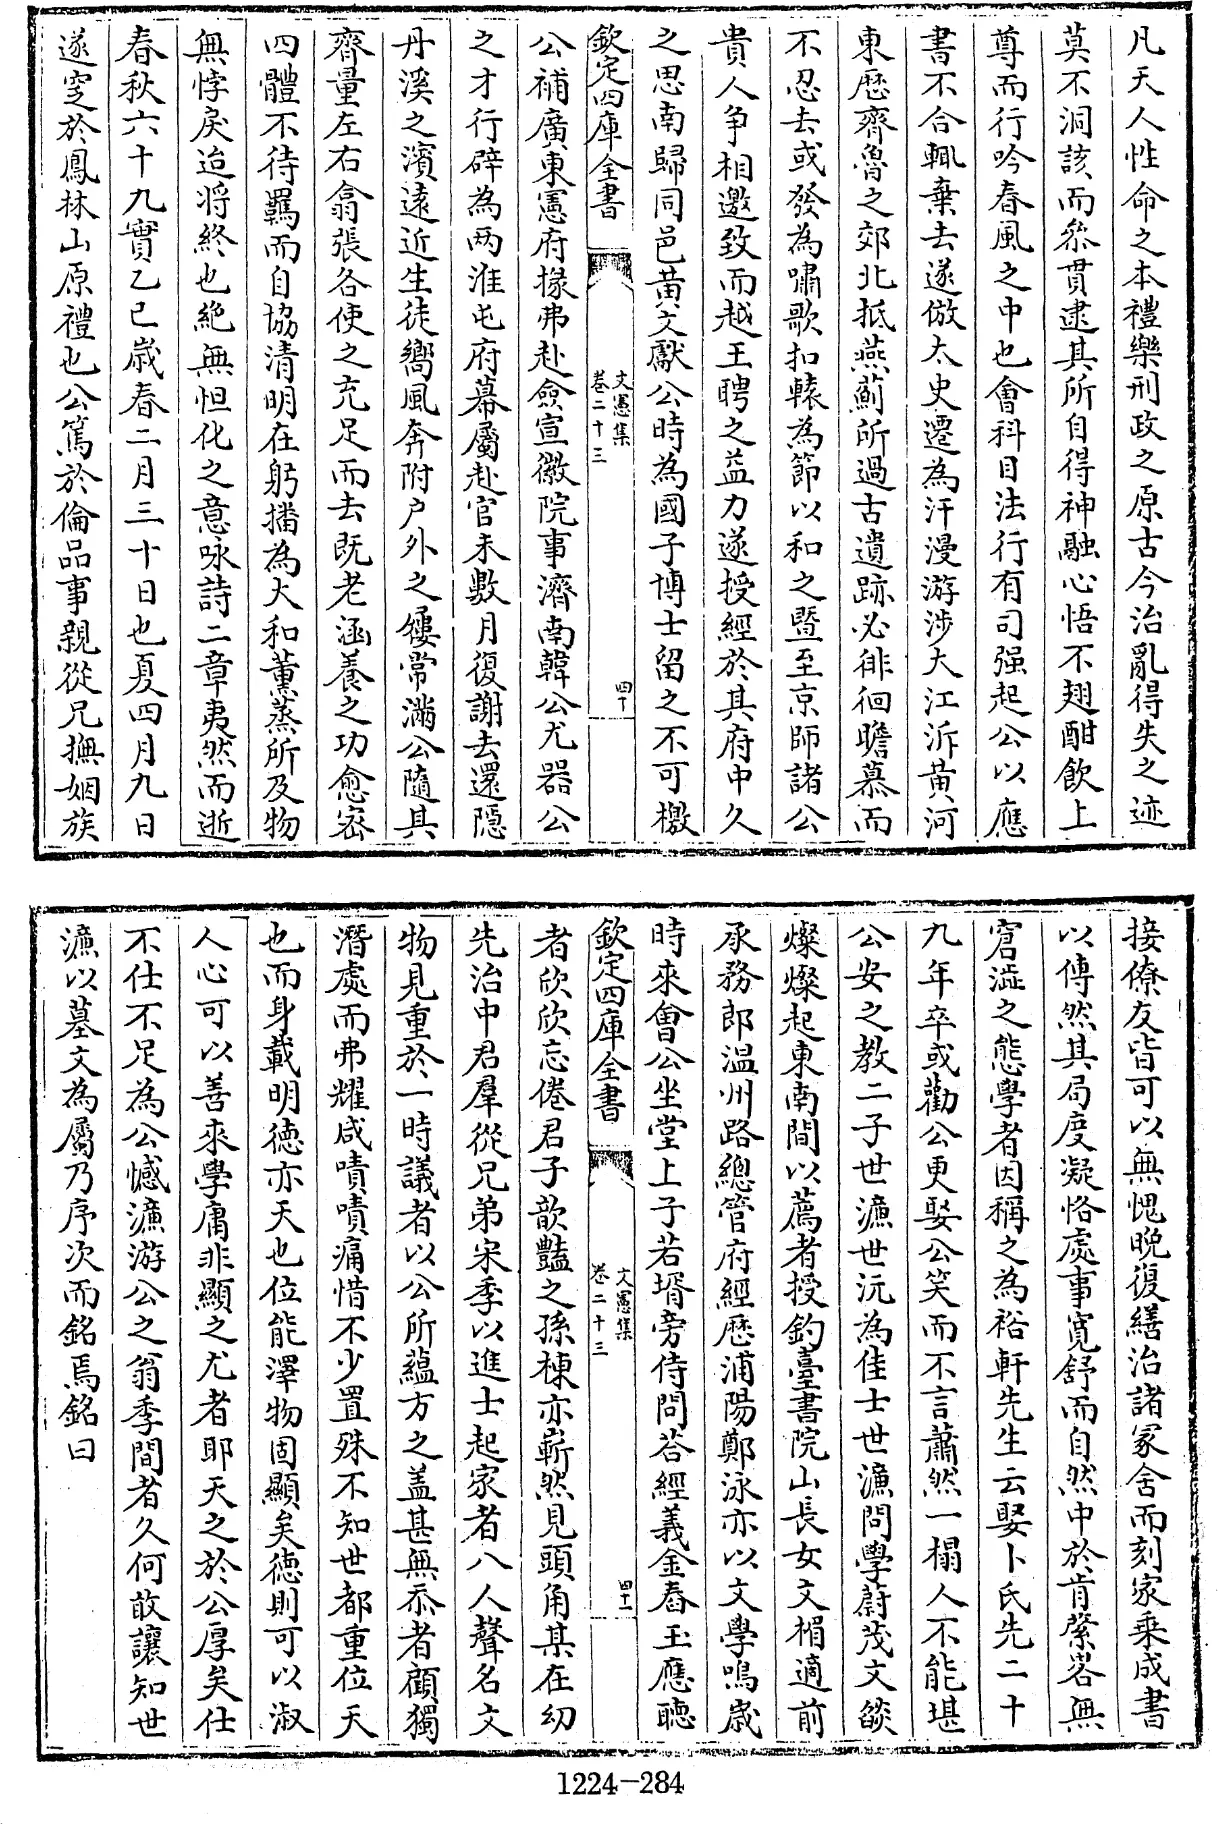 凡天人性命之本禮樂刑政之原古今治亂得失之迹
莫不洞該而叅貫逮其所自得神融心悟不翅酣飲上
尊而行吟春風之中也會科目法行有司强起公以應
書不合輒棄去遂倣太史遷為汗漫游涉大江泝黄河
東歴齊魯之郊北抵燕薊所過古遺跡必徘徊瞻慕而
不忍去或發為嘯歌扣轅為節以和之暨至京師諸公
貴人争相邀致而越王聘之益力遂授經於其府中久
之思南歸同邑黄文獻公時為國子博士留之不可檄
欽定四庫全書
文憲集
卷二十三
四十
公補廣東憲府掾弗赴僉宣徽院事濟南韓公尤器公
之才行辟為兩淮屯府幕屬赴官未數月復謝去還隠
丹溪之濱遠近生徒嚮風奔附户外之屨常滿公隨其
齊量左右翕張各使之充足而去既老涵養之功愈宻
四體不待羈而自協清明在躬播為大和薫蒸所及物
無悖戾迨将終也絶無怛化之意咏詩二章夷然而逝
春秋六十九實乙巳歳春二月三十日也夏四月九日
遂窆於鳳林山原禮也公篤於倫品事親從兄撫姻族
接僚友皆可以無愧晩復繕治諸冢舍而刻家乗成書
以傳然其局度凝恪處事寛舒而自然中於肯綮畧無
窘澁之態學者因稱之為裕軒先生云娶卜氏先二十
九年卒或勸公更娶公笑而不言蕭然一榻人不能堪
公安之教二子世濂世沅為佳士世濂問學蔚茂文燄
燦燦起東南間以薦者授釣臺書院山長女文楣適前
承務郎温州路總管府經歴浦陽鄭泳亦以文學鳴歳
時來會公坐堂上子若壻旁侍問荅經義金舂玉應聴
欽定四庫全書
文憲集
卷二十三
四十一
者欣欣忘倦君子歆豔之孫棟亦嶄然見頭角其在幼
先治中君羣從兄弟宋季以進士起家者八人聲名文
物見重於一時議者以公所藴方之盖甚無忝者顧獨
潛處而弗耀咸嘖嘖痛惜不少置殊不知世都重位天
也而身載明徳亦天也位能澤物固顯矣徳則可以淑
人心可以善來學庸非顯之尤者耶天之於公厚矣仕
不仕不足為公憾濂游公之翁季間者久何敢讓知世
濂以墓文為屬乃序次而銘焉銘曰
1224-284